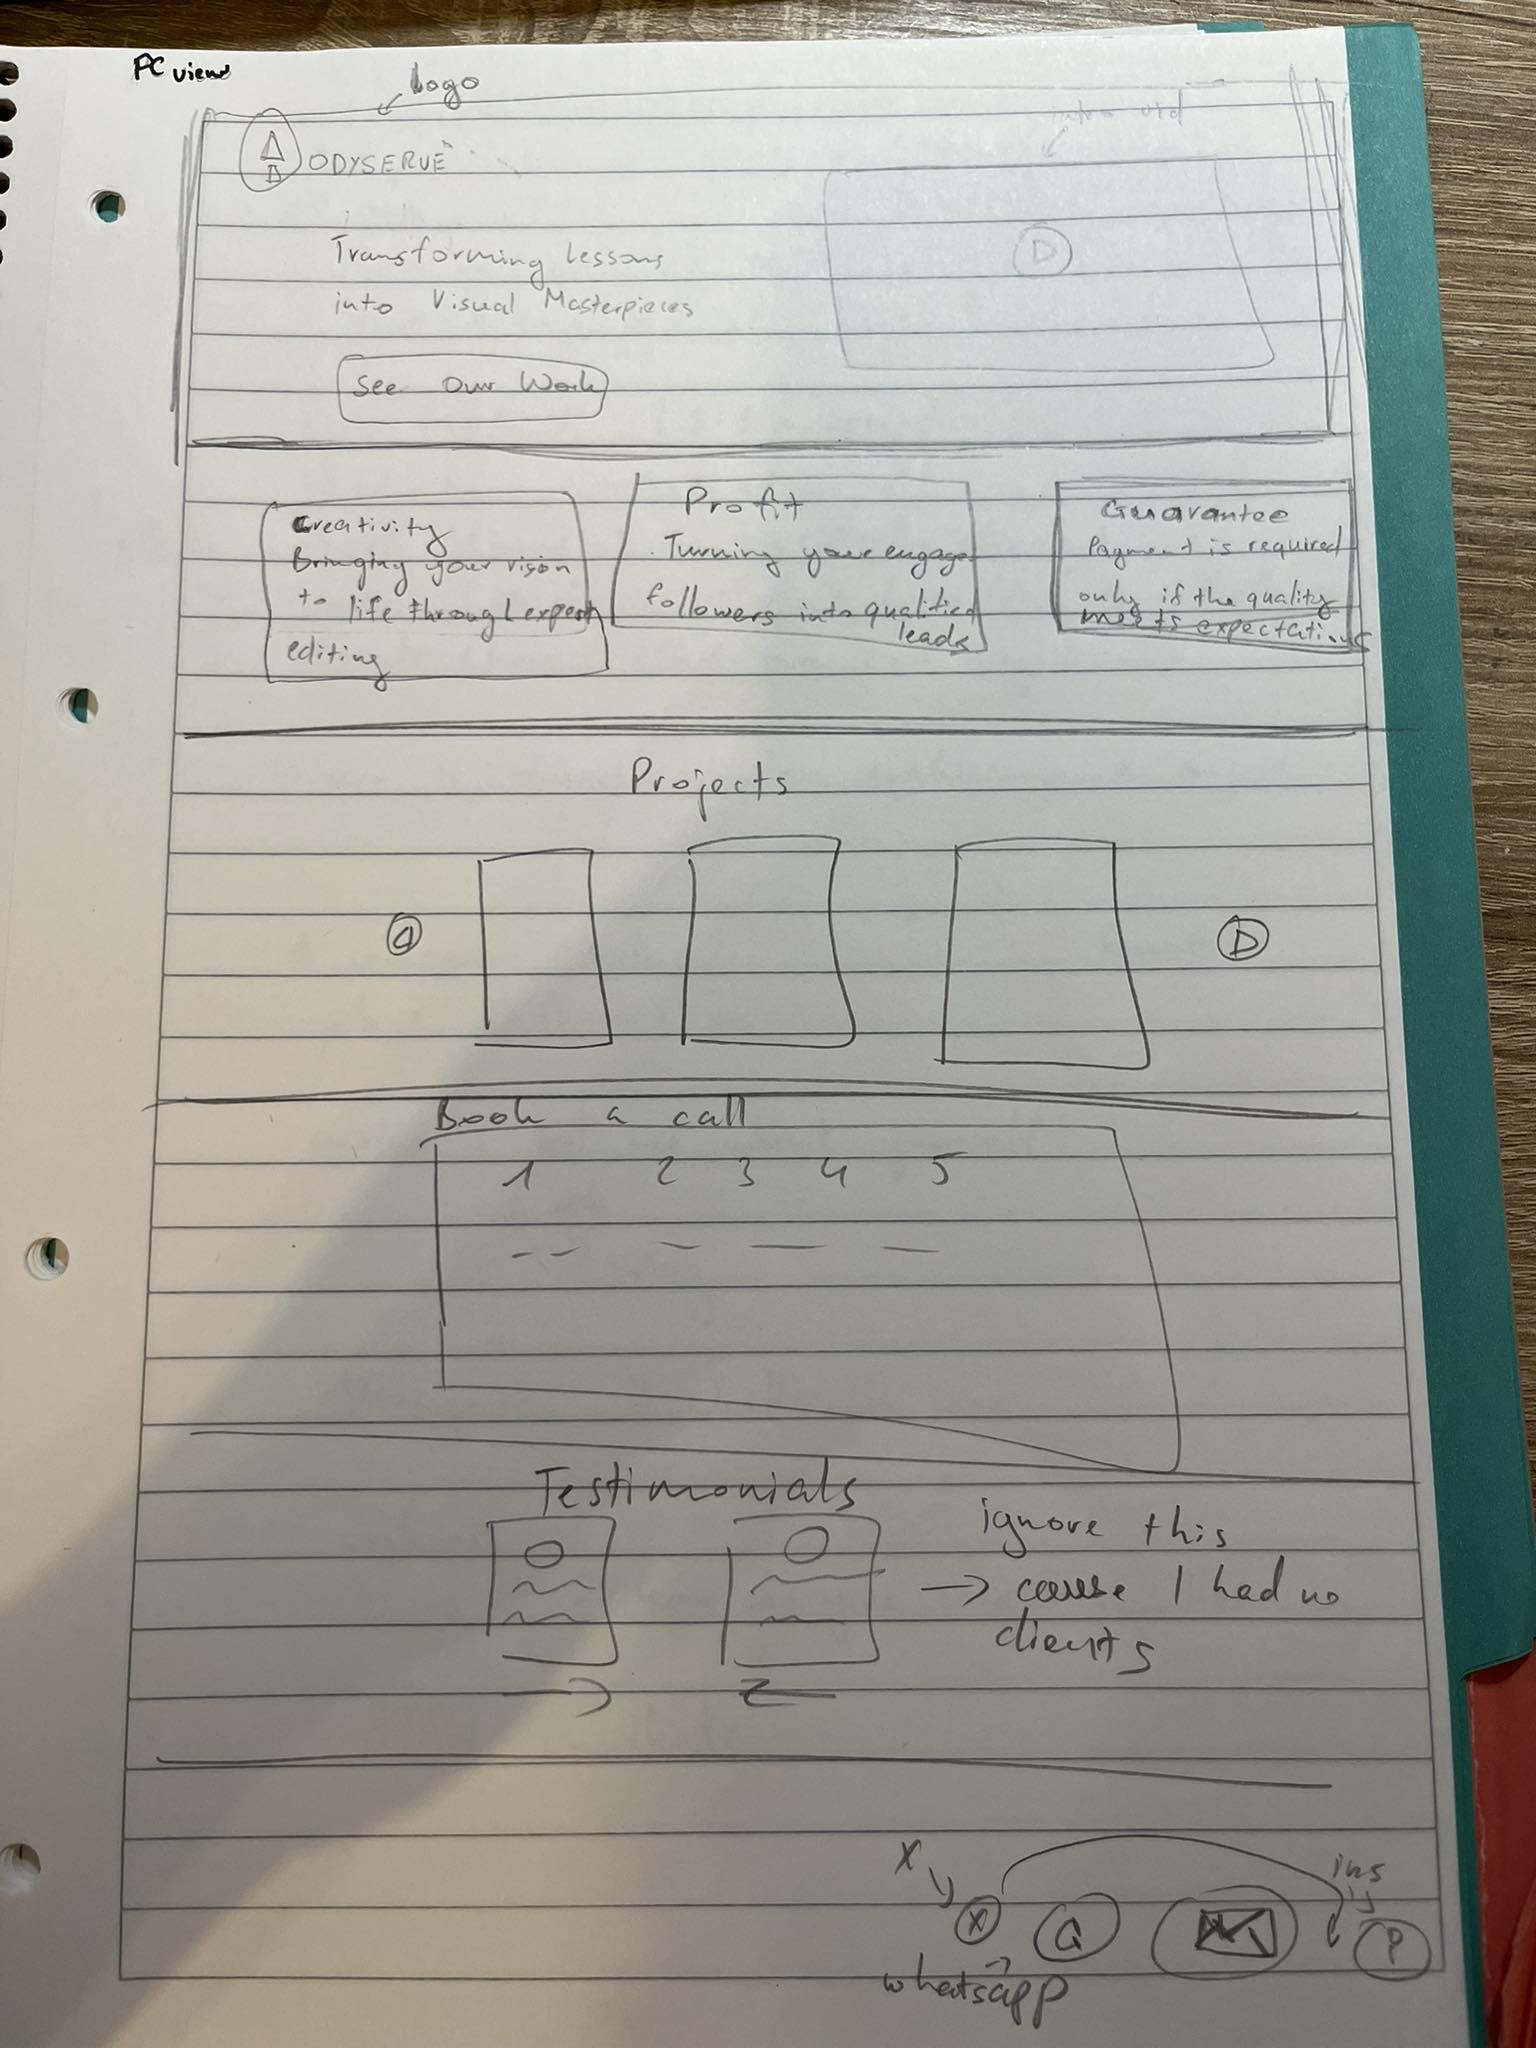 PC view
Logo
intro vid
ODYSERVE
Transforming Lessons
into Visual Masterpieces
See Our Work
Creativity
Bringing your vision
to life through expert
editing
Profit
Turning your engage
followers into qualified
leads
Guarantee
Payment is required
only if the quality
meets expectations
Projects
Book a call
1 2 3 4 5
Testimonials
ignore this
→ cause I had no
clients
X
ins
X
whatsapp